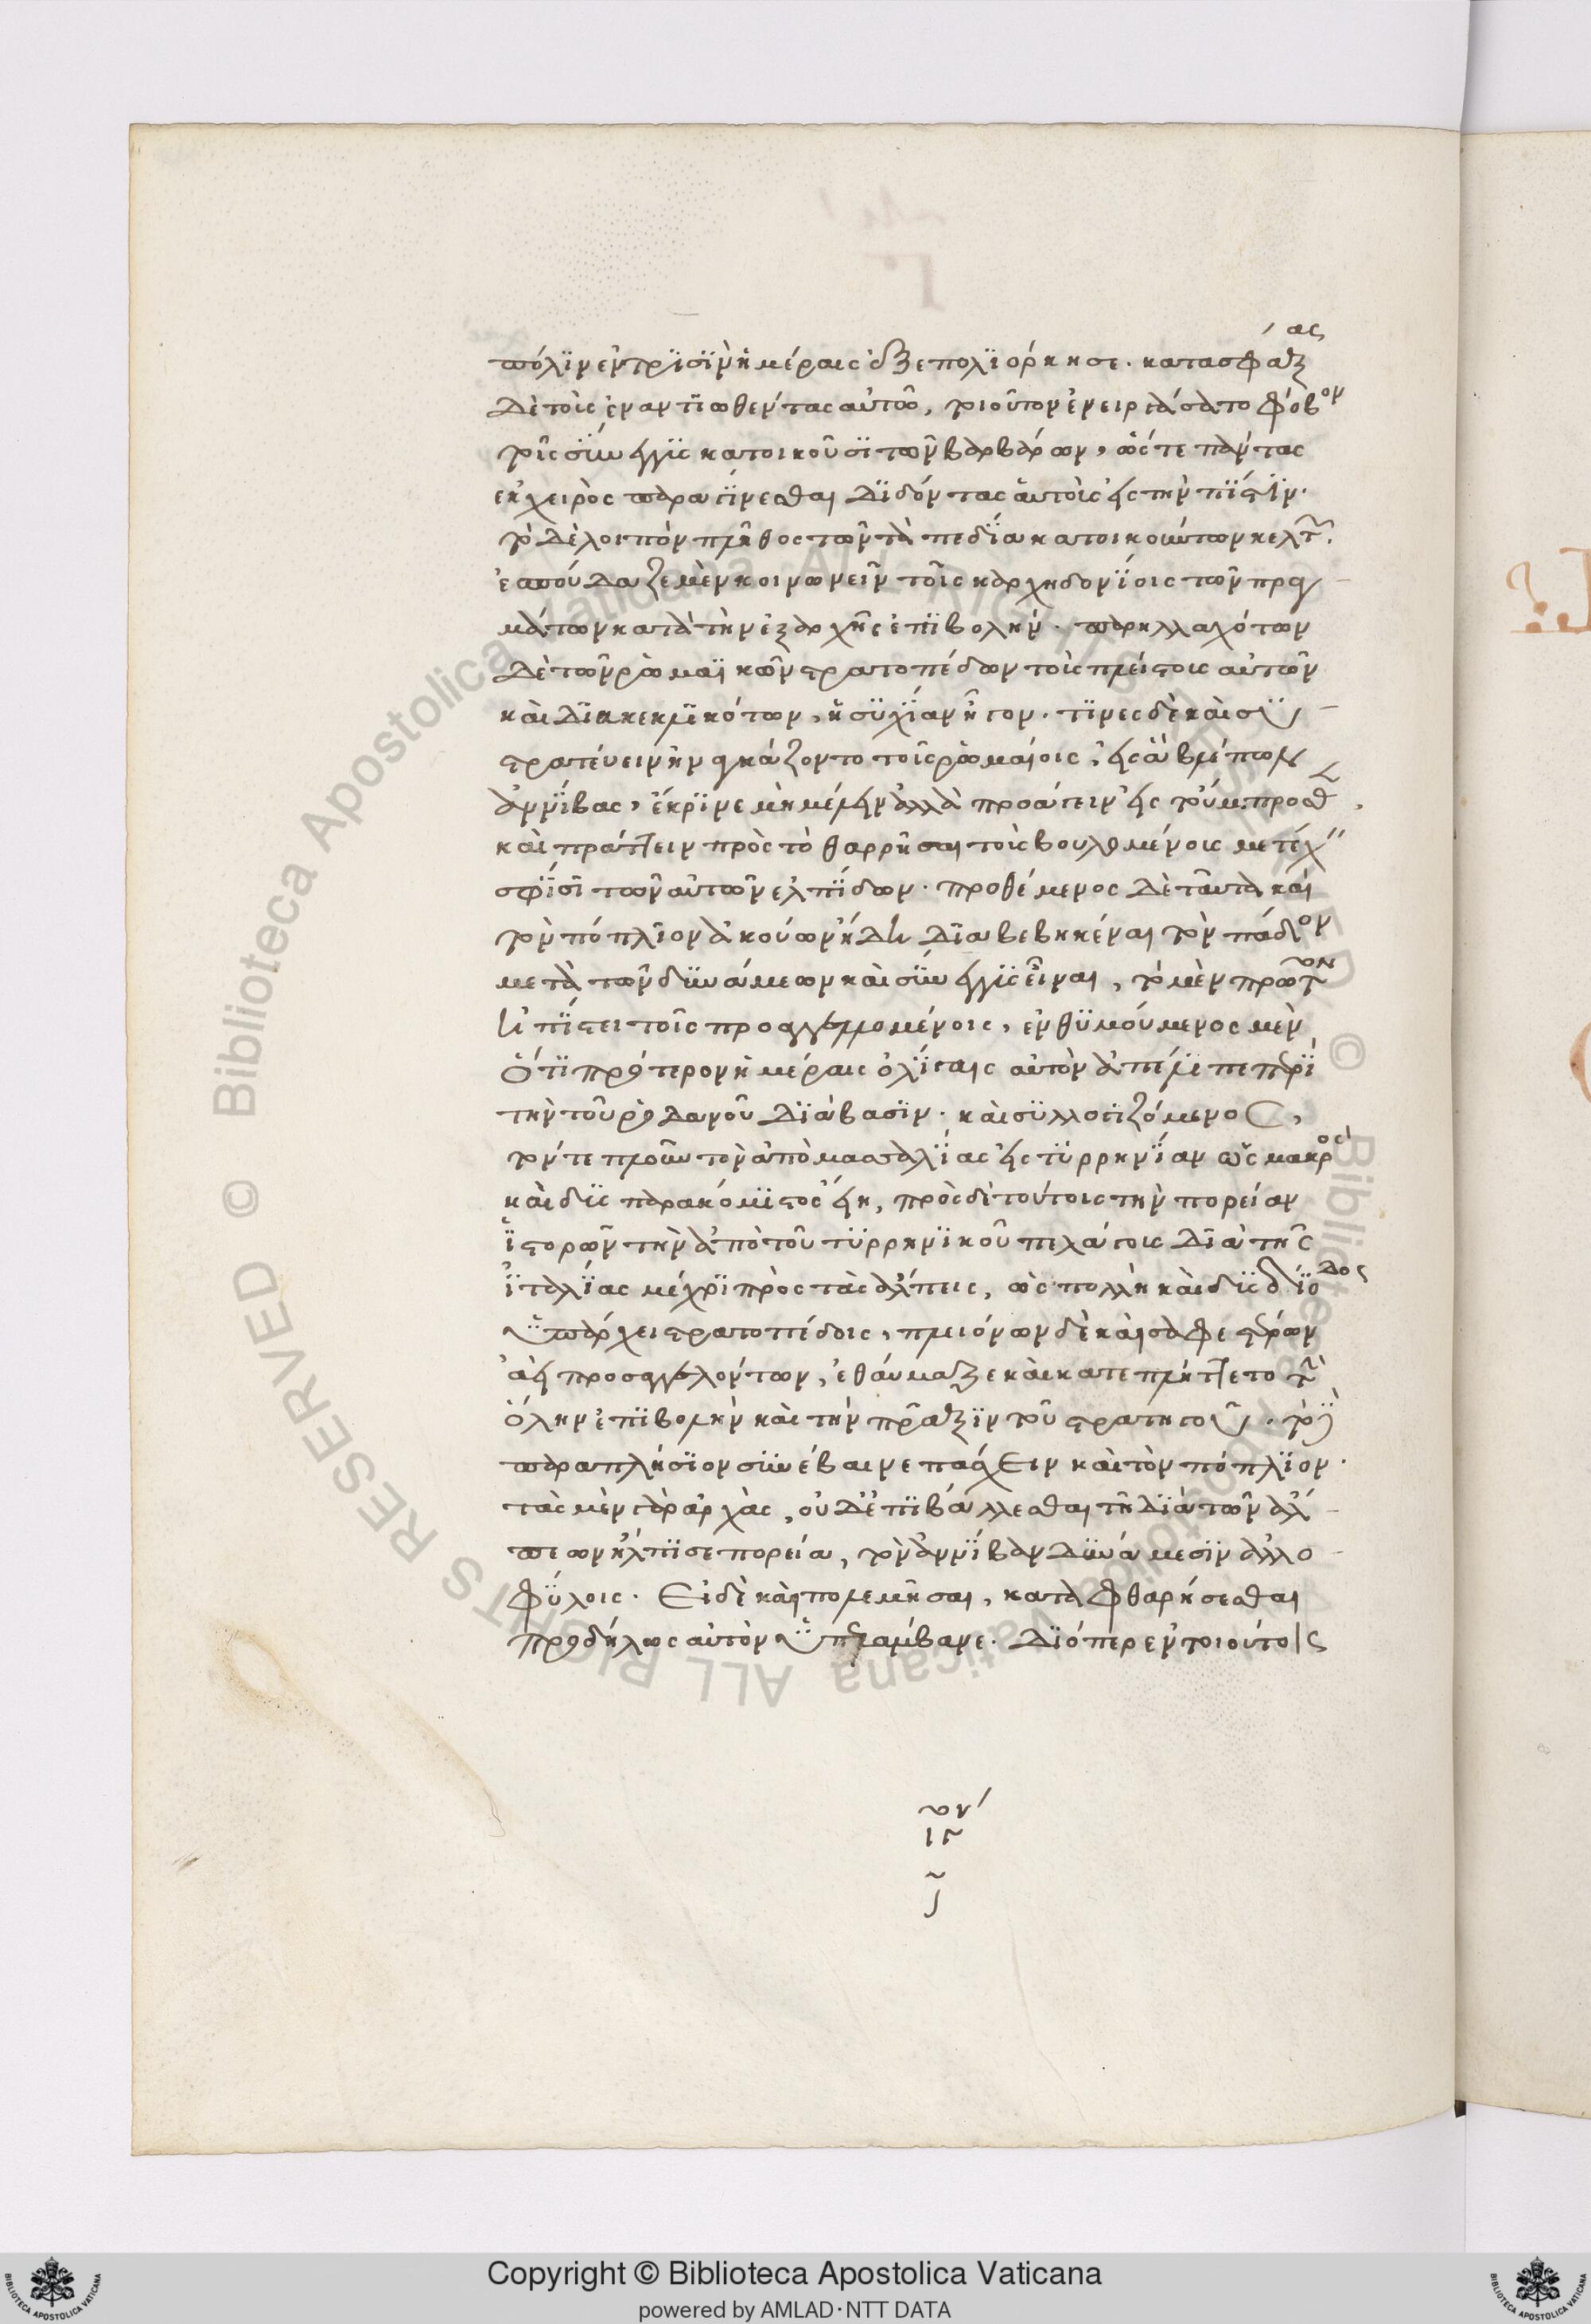 πόλϊν ἐν τρϊσῒν ἡμέραις ἐξεπολϊόρκησε. κατασφάξας
δὲ τοὺς ἐναντϊωθέντας αὐτῶ, τοιοῦτον ἐνειργάσατο φόβον
τοῖς σΰνεγγϋς κατοικοῦσϊ τῶν βαρβάρων, ὥστε πάντας
ἐκ χειρὸς παραγίνεσθαι δϊδόντας ἁυτοὺς εἰς τὴν πίστϊν.
τὸ δὲ λοιπὸν πλῆθος τῶν τὰ πεδΐα κατοικούντων κελτῶν.
ἐσπούδαζε μὲν κοινωνεῖν τοῖς καρχηδονΐοις τῶν πραγ
μάτων κατὰ τὴν ἐξαρχῆς ἐπϊβολήν. παρηλλαχότων
δὲ τῶν ῥωμαϊκῶν στρατοπέδων τοὺς πλείστους αὐτῶν
καὶ δϊακεκλικότων, ἡσϋχΐαν ἦγον. τϊνὲς δὲ καὶ σϋ
στρατεύειν ἠναγκάζοντο τοῖς ῥωμαίοις, εἰς ἃ βλέπων
ἀννΐβας, ἔκρϊνε μὴ μέλλειν ἀλλὰ προάγειν εἰς τοὔμπροσθεν,
καὶ πράττειν πρὸς τὸ θαρρῆσαι τοὺς βουλομένους μετέχειν
σφΐσϊ τῶν αὐτῶν ἐλπΐδων. προθέμενος δὲ ταῦτα καὶ
τὸν πόπλϊον ἀκούων ἤδη δϊαβεβηκέναι τὸν πάδον
μετὰ τῶν δϋνάμεων καὶ σΰνεγγϋς εἶναι, τὸ μὲν πρῶτον
ἠπΐστει τοῖς προσαγγελλομένοις, ἐνθϋμούμενος μὲν
ὅτϊ πρότερον ἡμέραις ὀλΐγαις αὐτὸν ἀπέλϊπε περὶ
τὴν τοῦ ῥοδανοῦ δϊάβασϊν. καὶ σϋλλογϊζόμενος,
τόν τε πλοῦν τὸν ἀπὸ μασσαλΐας εἰς τϋρρηνΐαν ὡς μακρὸς
καὶ δϋσπαρακόμϊστος εἴη, πρὸς δὲ τούτοις τὴν πορείαν
ἱστορῶν τὴν ἀπὸ τοῦ τϋρρηνϊκοῦ πελάγους δϊὰ τῆς
ἰταλΐας μέχρϊ πρὸς τὰς ἄλπεις, ὡς πολλὴ καὶ δϋσδΐοδος
ὑπάρχει στρατοπέδοις, πλειόνων δὲ καὶ σαφεστέρων
ἀεὶ προσαγγελόντων, ἐθάυμαζε καὶ κατεπλήττετο τὴν
ὅλην ἐπϊβολὴν καὶ τὴν πρᾶξϊν τοῦ στρατηγοῦ. τὸ δὲ
παραπλήσϊον σϋνέβαινε πάσχειν καὶ τὸν πόπλϊον.
τὰς μὲν γὰρ ἀρχὰς, οὐδ' ἐπϊβάλλεσθαι τῆ δϊὰ τῶν ἄλ
πεων ἤλπϊσε πορεία, τὸν ἀννΐβαν δϋνάμεσϊν ἀλλο
φΰλοις. Εἰ δὲ καὶ τολμῆσαι, καταφθαρήσεσθαι
προδήλως αὐτὸν ὑπελάμβανε. δϊόπερ ἐν τοιούτοις
Copyright © Biblioteca Apostolica Vaticana
powered by AMLAD·NTT DATA
© Biblioteca Apostolica Vaticana ALL RIGHTS RESERVED